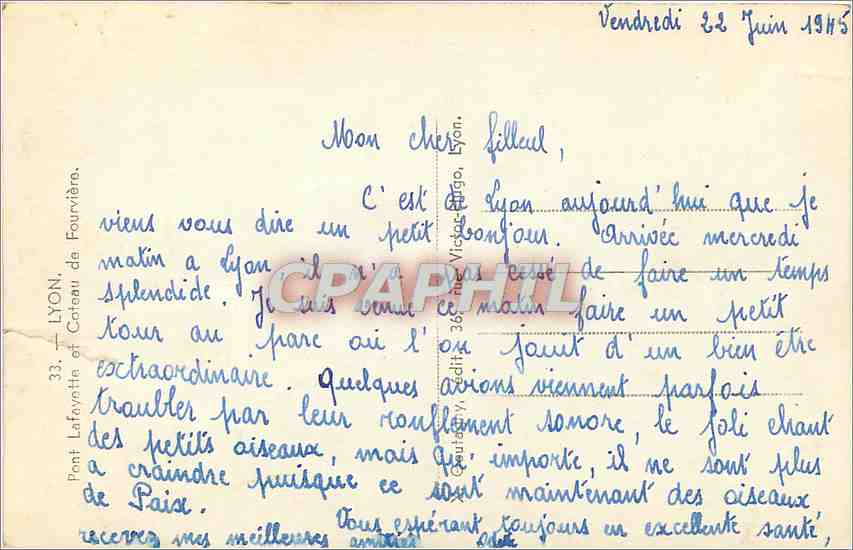 Vendredi 22 Juin 1945
Mon cher filleul,
C'est de Lyon aujourd'hui que je
viens vous dire un petit bonjour. Arrivée mercredi
matin a Lyon, il n'a pas cessé de faire un temps
splendide. Je suis venue ce matin faire un petit
tour au parc où l'on jouit d'un bien être
extraordinaire. Quelques avions viennent parfois
troubler par leur ronflement sonore, le joli chant
des petits oiseaux, mais qu'importe, il ne sont plus
a craindre puisque ce sont maintenant des oiseaux
de Paix.
Vous espérant toujours en excellente santé,
recevez mes meilleures amitiés
33. - LYON.
Pont Lafayette et Coteau de Fourvière.
édit., 36, rue Victor-Hugo, Lyon.
CPAPHIL